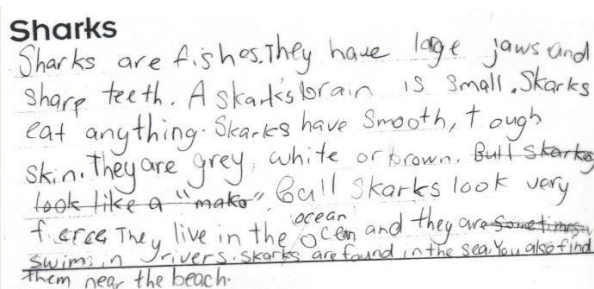 Sharks
Sharks are fishes. They have lage jaws and
sharp teeth. A skark's brain is small. Skarks
eat anything. Skarks have smooth, tough
skin. They are grey, white or brown. Bull skarks
look like a "mako" Bull skarks look very
ocean
fierce They live in the ocen and they are sometimes
swims in rivers. skarks are found in the sea. You also find
them near the beach.